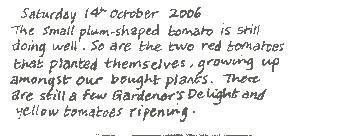 Saturday 14th October 2006
The small plum-shaped tomato is still
doing well. So are the two red tomatoes
that planted themselves, growing up
amongst our bought plants. There
are still a few Gardener's Delight and
yellow tomatoes ripening.